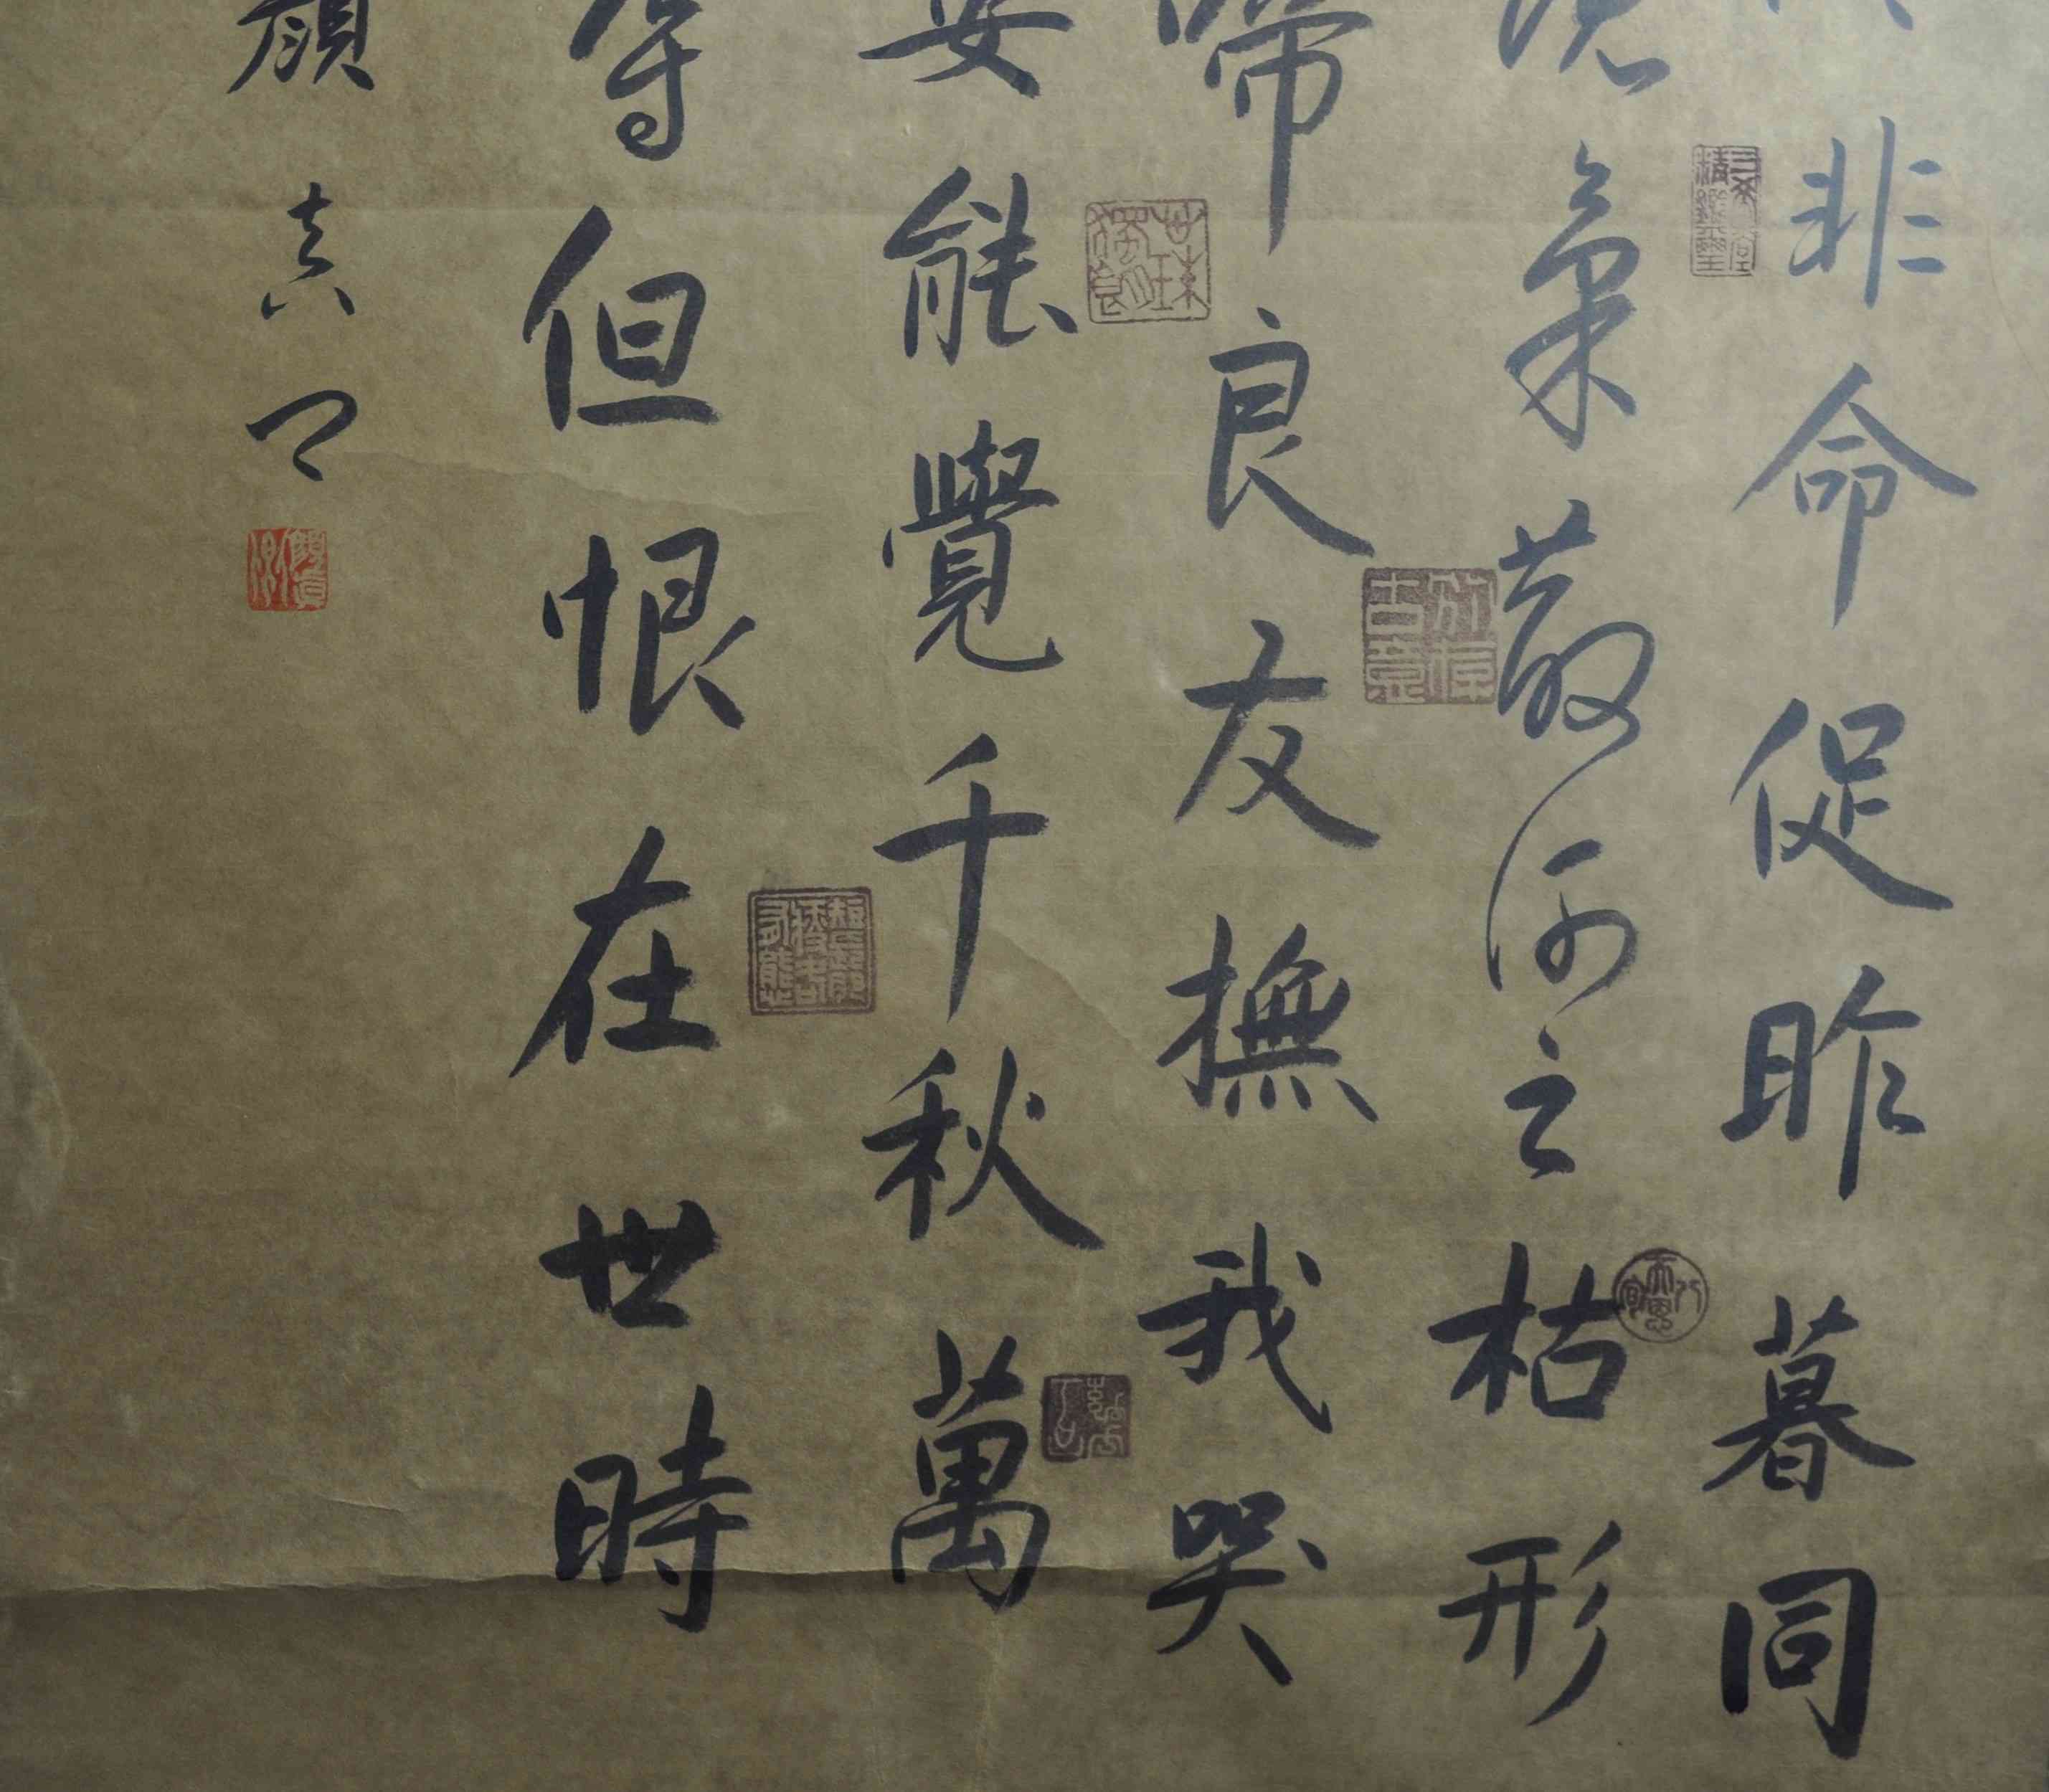 非命促昨暮同
氣散何之枯形
啼良友撫我哭
安能覺千秋萬
但恨在世時
顏真卿